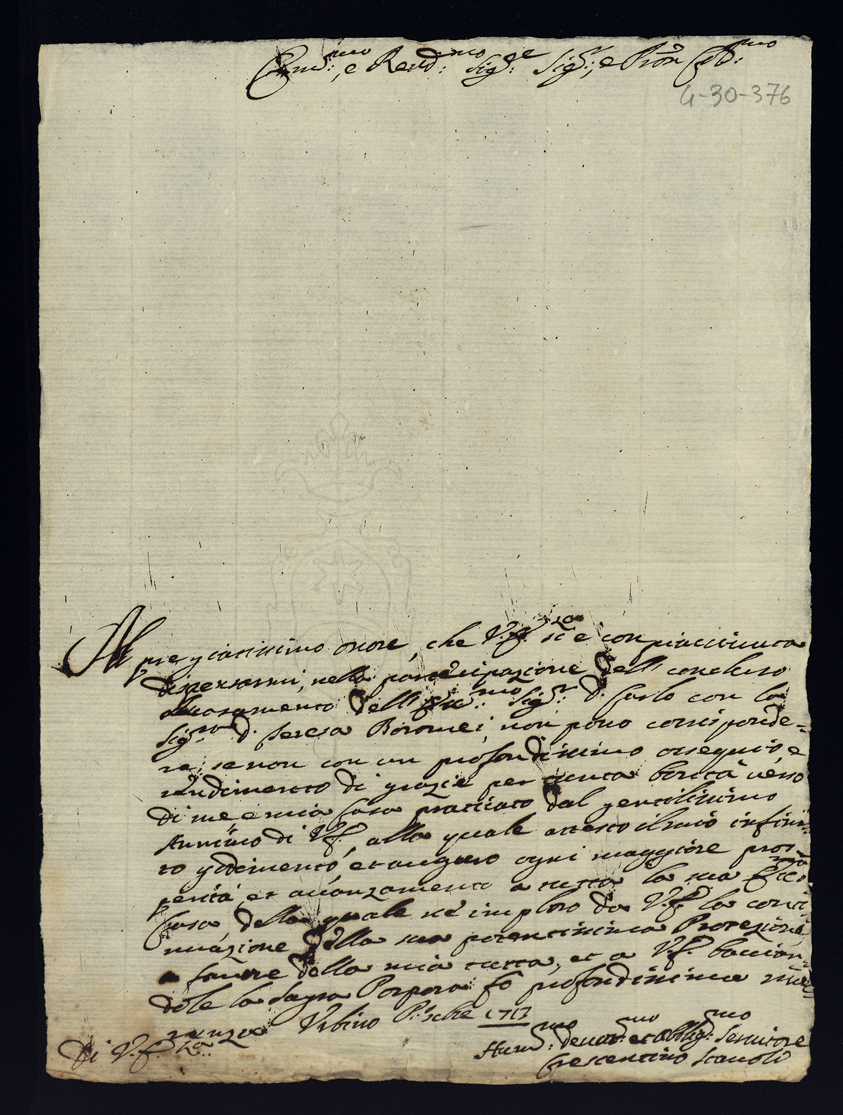 Em:mo, e Reud:mo Sig:re Sig:r, e Pron Col:mo
4-30-376
Al pregiatissimo onore, che V. E.za si è compiacciuta
dispensarmi, nella partecipazione dell concluso
accasamento dell' Sig:r D. Carlo con la
Sig:ra D. Teresa Boromei, non posso corrisponde=
re, se non con un profondissimo ossequio, e
rendimento di grazie per tanta bontà verso
di me e mia Casa praticato dal gentilissimo
Animo di V. E., alla quale attesto il mio infini-
to godimento, et auguro ogni maggiore pros-
perità, et avanzamento a tutta la sua Ecc:ma
Casa, della quale ne imploro da V. E. la conti
nuazione della sua potentissima Protezione,
a favore della mia tutta, et a V. E. bacian-
dole la Sagra Porpora fò profondissima rive
renza Urbino P:o 1713
Di V. E.za
Hum:mo deuot:mo et oblig:mo Seruitore
Crescentino Stauoli